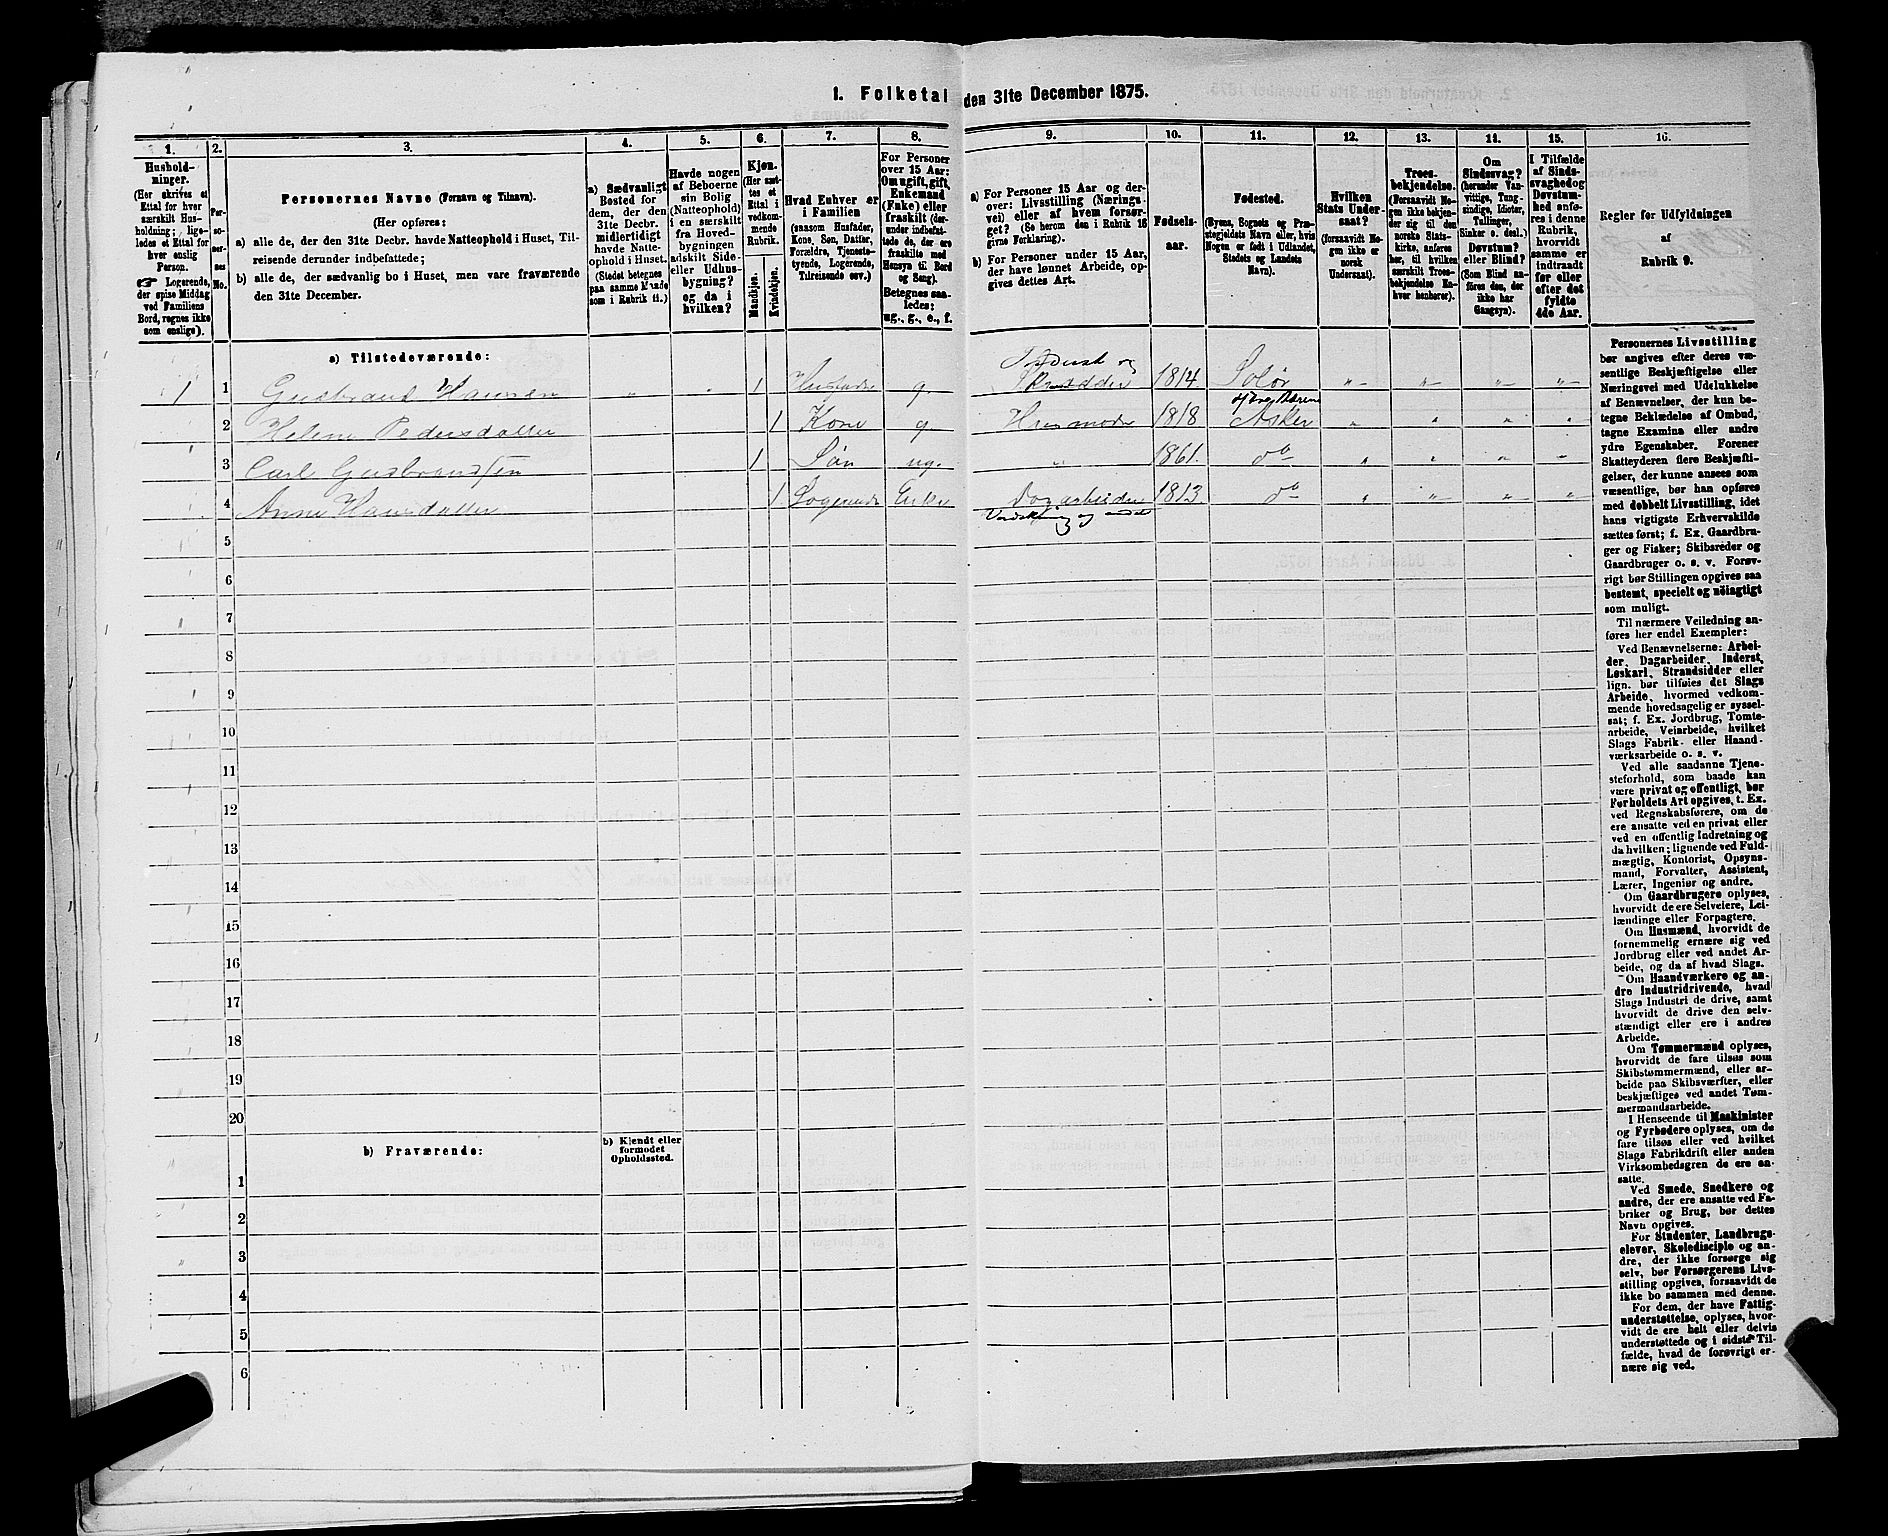 1. Folketal den 31te December 1875.
1. 2. 3. 4. 5. 6. 7. 8. 9. 10. 11. 12. 13. 14. 15. 16.
Hushold-
ninger.
(Her skrives et
Ettal for hver
særskilt Hus-
holdning; lige-
ledes et Ettal for
hver enslig
Person.
☞ Logerende,
der spise Middag
ved Familiens
Bord, regnes ikke
som enslige).
Per-
so-
ner-
nes
No.
Personernes Navne (Fornavn og Tilnavn).
(Her opføres:
a) alle de, der den 31te Decbr. havde Natteophold i Huset, Til-
reisende derunder indbefattede;
b) alle de, der sædvanlig bo i Huset, men vare fraværende
den 31te December.
a) Sædvanligt
Bosted for
dem, der den
31te Decbr.
midlertidigt
havde Natte-
ophold i Huset.
(Stedet betegnes
paa samme Maade
som i Rubrik 11.)
Havde nogen
af Beboerne
sin Bolig
(Natteophold)
i en særskilt
fra Hoved-
bygningen
adskilt Side-
eller Udhus-
bygning?
og da i
hvilken?
Kjøn.
(Her sæt-
tes et
Ettal i
vedkom-
mende
Rubrik.
Mandkjøn.
Kvindekjøn.
Hvad Enhver er
i Familien
(saasom Husfader,
Kone, Søn, Datter,
Forældre, Tjeneste-
tyende, Logerende,
Tilreisende osv.)
For Personer
over 15 Aar:
Om ugift, gift,
Enkemand
(Enke) eller
fraskilt (der-
under indbefat-
tede de, der ere
fraskilte med
Hensyn til Bord
og Seng).
Betegnes saa-
ledes:
ug., g., e., f.
a) For Personer 15 Aar og der-
over: Livsstilling (Nærings-
vei) eller af hvem forsør-
get? (Se herom den i Rubrik 16
givne Forklaring).
b) For Personer under 15 Aar,
der have lønnet Arbeide, op-
gives dettes Art.
Fødsels-
aar.
Fødested.
(Byens, Sognets og Præ-
stegjeldets Navn eller, hvis
Nogen er født i Udlandet,
Stedets og Landets
Navn).
Hvilken
Stats Under-
saat?
(forsaavidt No-
gen ikke er
norsk
Undersaat).
Troes-
bekjendelse.
(Forsaavidt No-
gen ikke bekjen-
der sig til den
norske Stats-
kirke, anføres
her, til hvilken
særskilt Troes-
bekjendelse En-
hver henhører).
Om
Sindssvag?
(herunder Van-
vittige, Tung-
sindige, Idioter,
Tullinger,
Sinker o. desl.).
Døvstum?
eller Blind?
(Som Blind an-
føres den, der
ikke har
Gangsyn).
I Tilfælde
af Sinds-
svaghed og
Døvstum-
hed anfø-
res i denne
Rubrik,
hvorvidt
samme er
indtraadt
før eller
efter det
fyldte
4de Aar.
Regler for Udfyldningen
af
Rubrik 9.
a) Tilstedeværende:
1 1 Gudbrand Hansen „ „ 1 Husfader g. 1814 Solør „ „ „ „
2 Helene Pedersdatter 1 Kone g Husmoder 1818 Asker „ „ „ „
3 Carl Gudbrandsen 1 Søn ug. „ 1861. do „ „ „ „
4 Anne Hansdatter 1 Logerende Enke Dagarbeider 1813 do „ „ „ „
5
6
7
8
9
10
11
12
13
14
15
16
17
18
19
20
b) Fraværende:
b) Kjendt eller
formodet
Opholdssted.
1
2
3
4
5
6
Personernes Livsstilling
bør angives efter deres væ-
sentlige Beskjæftigelse eller
Næringsvei med Udelukkelse
af Benævnelser, der kun be-
tegne Beklædelse af Ombud,
tagne Examina eller andre
ydre Egenskaber. Forener
Skatteyderen flere Beskjæfti-
gelser, der kunne ansees som
væsentlige, bør han opføres
med dobbelt Livsstilling, idet
hans vigtigste Erhvervskilde
sættes først; f. Ex. Gaardbru-
ger og Fisker; Skibsreder og
Gaardbruger o. s. v. Forøv-
rigt bør Stillingen opgives saa
bestemt, specielt og nöiagtigt
som muligt.
Til nærmere Veiledning an-
føres her endel Exempler:
Ved Benævnelserne: Arbei-
der, Dagarbeider, Inderst,
Løskarl, Strandsidder eller
lign. bør tilføies det Slags
Arbeide, hvormed vedkom-
mende hovedsagelig er syssel-
sat; f. Ex. Jordbrug, Tomte-
arbeide, Veiarbeide, hvilket
Slags Fabrik- eller Haand-
værksarbeide o. s. v.
Ved alle saadanne Tjene-
steforhold, som baade kan
være privat og offentligt, bør
Forholdets Art opgives, t. Ex.
ved Regnskabsførere, om de
ere ansatte ved en privat eller
ved en offentlig Indretning og
da hvilken; lignende ved Fuld-
mægtig, Kontorist, Opsyns-
mand, Forvalter, Assistent,
Lærer, Ingeniør og andre.
Om Gaardbrugere oplyses,
hvorvidt de ere Selveiere, Lei-
lændinge eller Forpagtere.
Om Husmænd, hvorvidt de
fornemmelig ernære sig ved
Jordbrug eller ved andet Ar-
beide, og da af hvad Slags.
Om Haandværkere og an-
dre Industridrivende, hvad
Slags Industri de drive, samt
hvorvidt de drive den selv-
stændigt eller ere i andres
Arbeide.
Om Tømmermænd oplyses,
hvorvidt de fare tilsøs som
Skibstømmermænd, eller ar-
beide paa Skibsværfter, eller
beskjæftiges ved andet Tøm-
mermandsarbeide.
I Henseende til Maskinister
og Fyrbødere oplyses, om de
fare tilsøs eller ved hvilket
Slags Fabrikdrift eller anden
Virksomhedsgren de ere an-
satte.
Ved Smede, Snedkere og
andre, der ere ansatte ved Fa-
briker og Brug, bør dettes
Navn opgives.
For Studenter, Landbrugs-
elever, Skoledisciple og an-
dre, der ikke forsørge sig
selv, bør Forsørgerens Livs-
stilling opgives, forsaavidt de
ikke bo sammen med denne.
For dem, der have Fattig-
understøttelse, oplyses, hvor-
vidt de ere helt eller delvis
understøttede og i sidste Til-
fælde, hvad de forøvrigt er-
nære sig ved.